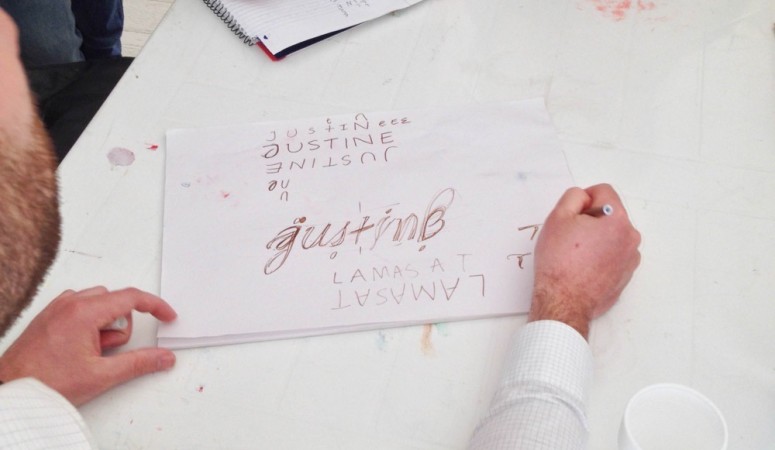 JUSTINeee
JUSTINE
JUSTINE
ne
justine
LAMASAT
LAMASAT